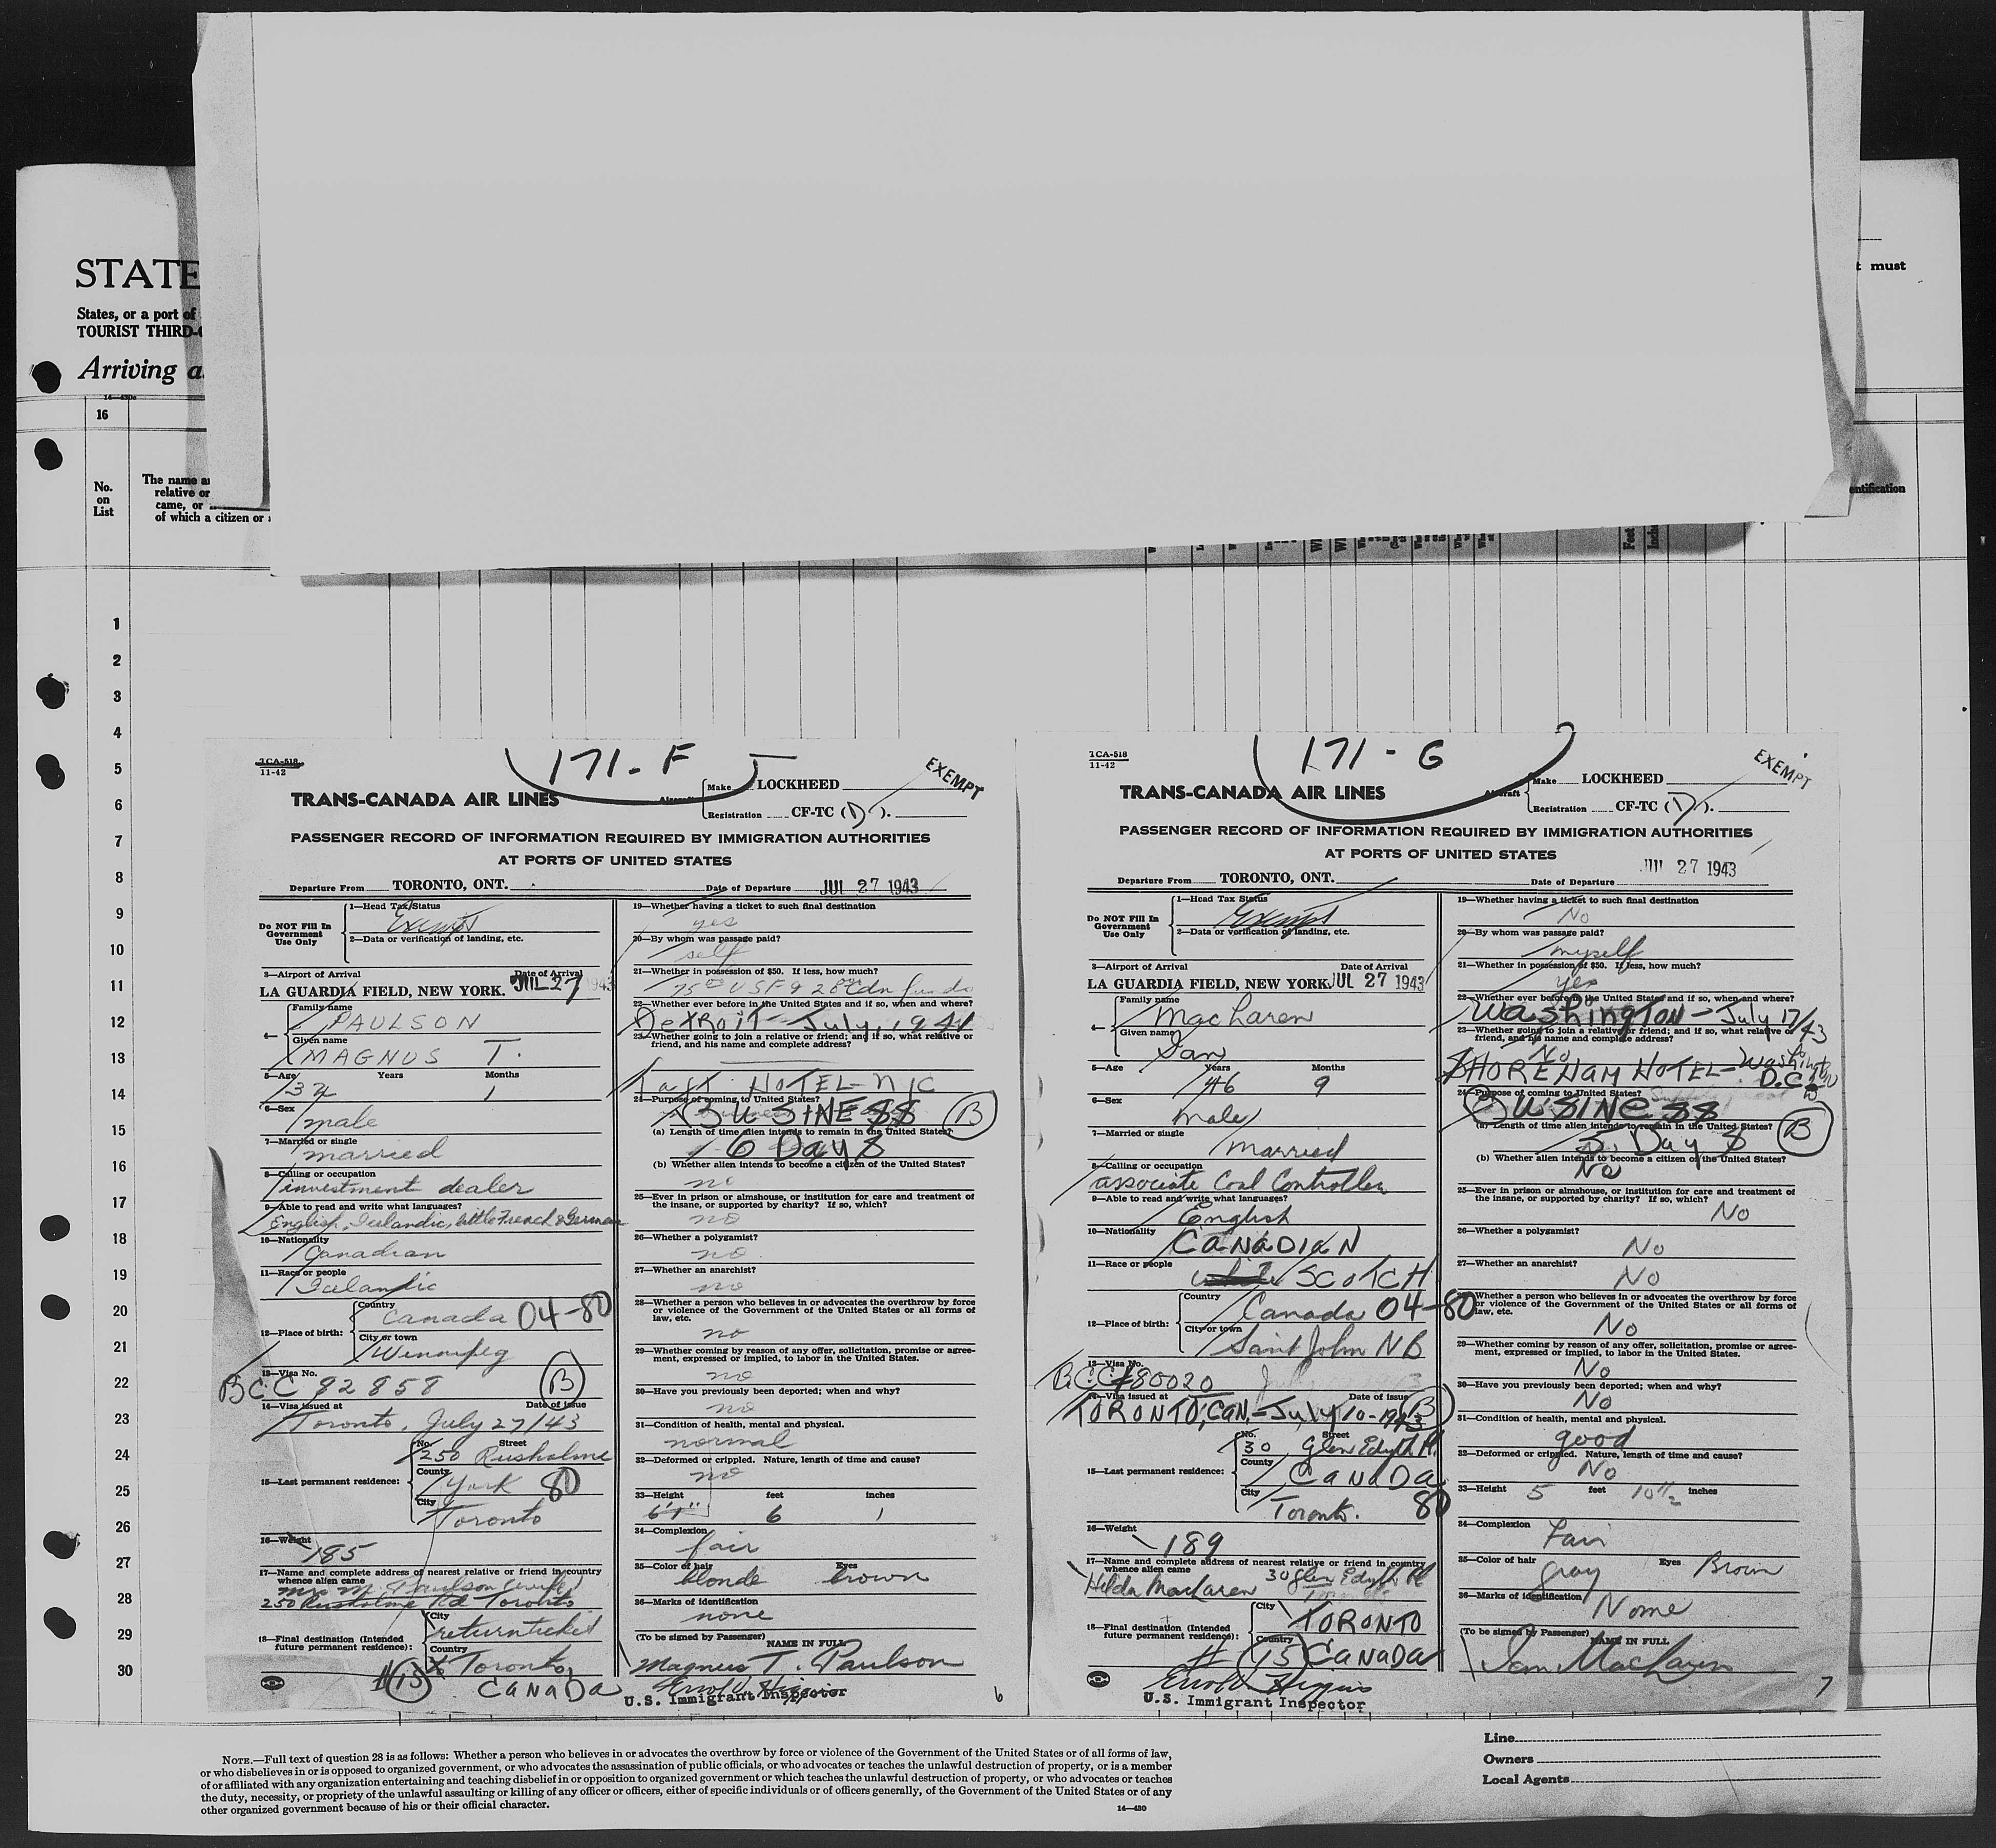 STATE
States, or a port of
TOURIST THIRD-
Arriving a
t must
16
No.
on
List
The name a
relative or
came, or
of which a citizen or
entification
Feet
1
2
3
4
5
6
7
8
9
10
11
12
13
14
15
16
17
18
19
20
21
22
23
24
25
26
27
28
29
30
171-F
TCA-518
11-42
EXEMPT
TRANS-CANADA AIR LINES
Aircraft
Make LOCKHEED
Registration CF-TC (D).
PASSENGER RECORD OF INFORMATION REQUIRED BY IMMIGRATION AUTHORITIES
AT PORTS OF UNITED STATES
Departure From TORONTO, ONT. Date of Departure JUL 27 1943
Do NOT Fill In
Government
Use Only
1—Head Tax Status
Exempt
2—Data or verification of landing, etc.
3—Airport of Arrival Date of Arrival
LA GUARDIA FIELD, NEW YORK. JUL 27 1943
4—
Family name
PAULSON
Given name
MAGNUS T.
5—Age Years Months
34 1
6—Sex
male
7—Married or single
married
8—Calling or occupation
investment dealer
9—Able to read and write what languages?
English, Icelandic, little French & German
10—Nationality
Canadian
11—Race or people
Icelandic
12—Place of birth:
Country
Canada 04-80
City or town
Winnipeg
13—Visa No.
BCC 92858 B
14—Visa issued at Date of issue
Toronto, July 27/43
15—Last permanent residence:
No. Street
250 Rusholme
County
York 80
City
Toronto
16—Weight
185
17—Name and complete address of nearest relative or friend in country
whence alien came
Mrs M. Paulson (wife)
250 Rusholme Rd Toronto
18—Final destination (Intended
future permanent residence):
City
return ticket
Country
to Toronto,
#15 CANADA
19—Whether having a ticket to such final destination
yes
20—By whom was passage paid?
self
21—Whether in possession of $50. If less, how much?
75 USF & 28 Cdn funds
22—Whether ever before in the United States and if so, when and where?
DETROIT - July, 1941
23—Whether going to join a relative or friend; and if so, what relative or
friend, and his name and complete address?
Taft HOTEL-NYC
24—Purpose of coming to United States?
BUSINESS B
(a) Length of time alien intends to remain in the United States?
6 Days
(b) Whether alien intends to become a citizen of the United States?
no
25—Ever in prison or almshouse, or institution for care and treatment of
the insane, or supported by charity? If so, which?
no
26—Whether a polygamist?
no
27—Whether an anarchist?
no
28—Whether a person who believes in or advocates the overthrow by force
or violence of the Government of the United States or all forms of
law, etc.
no
29—Whether coming by reason of any offer, solicitation, promise or agree-
ment, expressed or implied, to labor in the United States.
no
30—Have you previously been deported; when and why?
no
31—Condition of health, mental and physical.
normal
32—Deformed or crippled. Nature, length of time and cause?
no
33—Height feet inches
6'1" 6 1
34—Complexion
fair
35—Color of hair Eyes
blonde brown
36—Marks of identification
none
(To be signed by Passenger) NAME IN FULL
Magnus T. Paulson
Errol Higgins
U.S. Immigrant Inspector
6
171-G
TCA-518
11-42
EXEMPT
TRANS-CANADA AIR LINES
Aircraft
Make LOCKHEED
Registration CF-TC (D).
PASSENGER RECORD OF INFORMATION REQUIRED BY IMMIGRATION AUTHORITIES
AT PORTS OF UNITED STATES
JUL 27 1943
Departure From TORONTO, ONT. Date of Departure
Do NOT Fill In
Government
Use Only
1—Head Tax Status
Exempt
2—Data or verification of landing, etc.
3—Airport of Arrival Date of Arrival
LA GUARDIA FIELD, NEW YORK JUL 27 1943
4—
Family name
MacLaren
Given name
Ian
5—Age Years Months
46 9
6—Sex
Male
7—Married or single
Married
8—Calling or occupation
associate Coal Controller
9—Able to read and write what languages?
English
10—Nationality
CANADIAN
11—Race or people
white SCOTCH
12—Place of birth:
Country
Canada 04-80
City or town
Saint John NB
13—Visa No.
BCC #80020
14—Visa issued at Date of issue
TORONTO, CAN,-July 10-1943 B
15—Last permanent residence:
No. Street
30 Glen Edyth Pl.
County
CANADA
City
Toronto. 80
16—Weight
189
17—Name and complete address of nearest relative or friend in country
whence alien came
Hilda MacLaren 30 Glen Edyth Pl
18—Final destination (Intended
future permanent residence):
City
TORONTO
Country
# 15 CANADA
Errol Higgins
U.S. Immigrant Inspector
19—Whether having a ticket to such final destination
No
20—By whom was passage paid?
myself
21—Whether in possession of $50. If less, how much?
yes
22—Whether ever before in the United States and if so, when and where?
WashingTON - July 17/43
23—Whether going to join a relative or friend; and if so, what relative or
friend, and his name and complete address?
No
SHOREHAM HOTEL-Washington
D.C.
24—Purpose of coming to United States?
BUSINESS
(a) Length of time alien intends to remain in the United States?
5 Days B
(b) Whether alien intends to become a citizen of the United States?
No
25—Ever in prison or almshouse, or institution for care and treatment of
the insane, or supported by charity? If so, which?
No
26—Whether a polygamist?
No
27—Whether an anarchist?
No
Whether a person who believes in or advocates the overthrow by force
or violence of the Government of the United States or all forms of
law, etc.
No
29—Whether coming by reason of any offer, solicitation, promise or agree-
ment, expressed or implied, to labor in the United States.
No
30—Have you previously been deported; when and why?
No
31—Condition of health, mental and physical.
good
32—Deformed or crippled. Nature, length of time and cause?
No
33—Height 5 feet 10 1/2 inches
34—Complexion
Fair
35—Color of hair Eyes
gray Brown
36—Marks of identification
None
(To be signed by Passenger) NAME IN FULL
Ian MacLaren
7
NOTE.—Full text of question 28 is as follows: Whether a person who believes in or advocates the overthrow by force or violence of the Government of the United States or of all forms of law,
or who disbelieves in or is opposed to organized government, or who advocates the assassination of public officials, or who advocates or teaches the unlawful destruction of property, or is a member
of or affiliated with any organization entertaining and teaching disbelief in or opposition to organized government or which teaches the unlawful destruction of property, or who advocates or teaches
the duty, necessity, or propriety of the unlawful assaulting or killing of any officer or officers, either of specific individuals or of officers generally, of the Government of the United States or of any
other organized government because of his or their official character.
14—430
Line
Owners
Local Agents